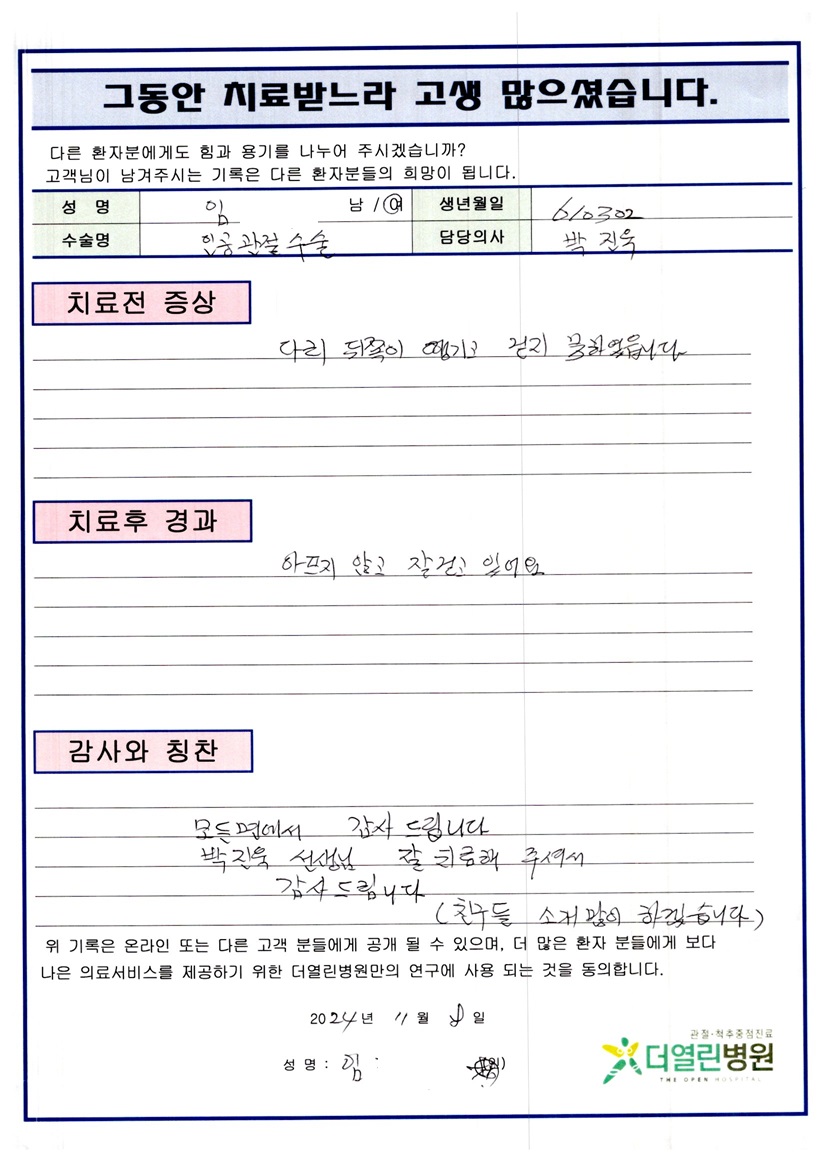 그동안 치료받느라 고생 많으셨습니다.
다른 환자분에게도 힘과 용기를 나누어 주시겠습니까?
고객님이 남겨주시는 기록은 다른 환자분들의 희망이 됩니다.
성 명 임 남 / 여 생년월일 610302
수술명 인공관절수술 담당의사 박진욱
치료전 증상
다리 뒤쪽이 땡기고 걷지 못하였읍니다
치료후 경과
아프지 않고 잘걷고 있어요
감사와 칭찬
모든면에서 감사 드립니다
박진욱 선생님 잘 치료해 주셔서
감사드립니다
(친구들 소개많이 하겠습니다)
위 기록은 온라인 또는 다른 고객 분들에게 공개 될 수 있으며, 더 많은 환자 분들에게 보다
나은 의료서비스를 제공하기 위한 더열린병원만의 연구에 사용 되는 것을 동의합니다.
2024년 11월 8일
성 명 : 임
관절·척추중점진료
더열린병원
THE OPEN HOSPITAL